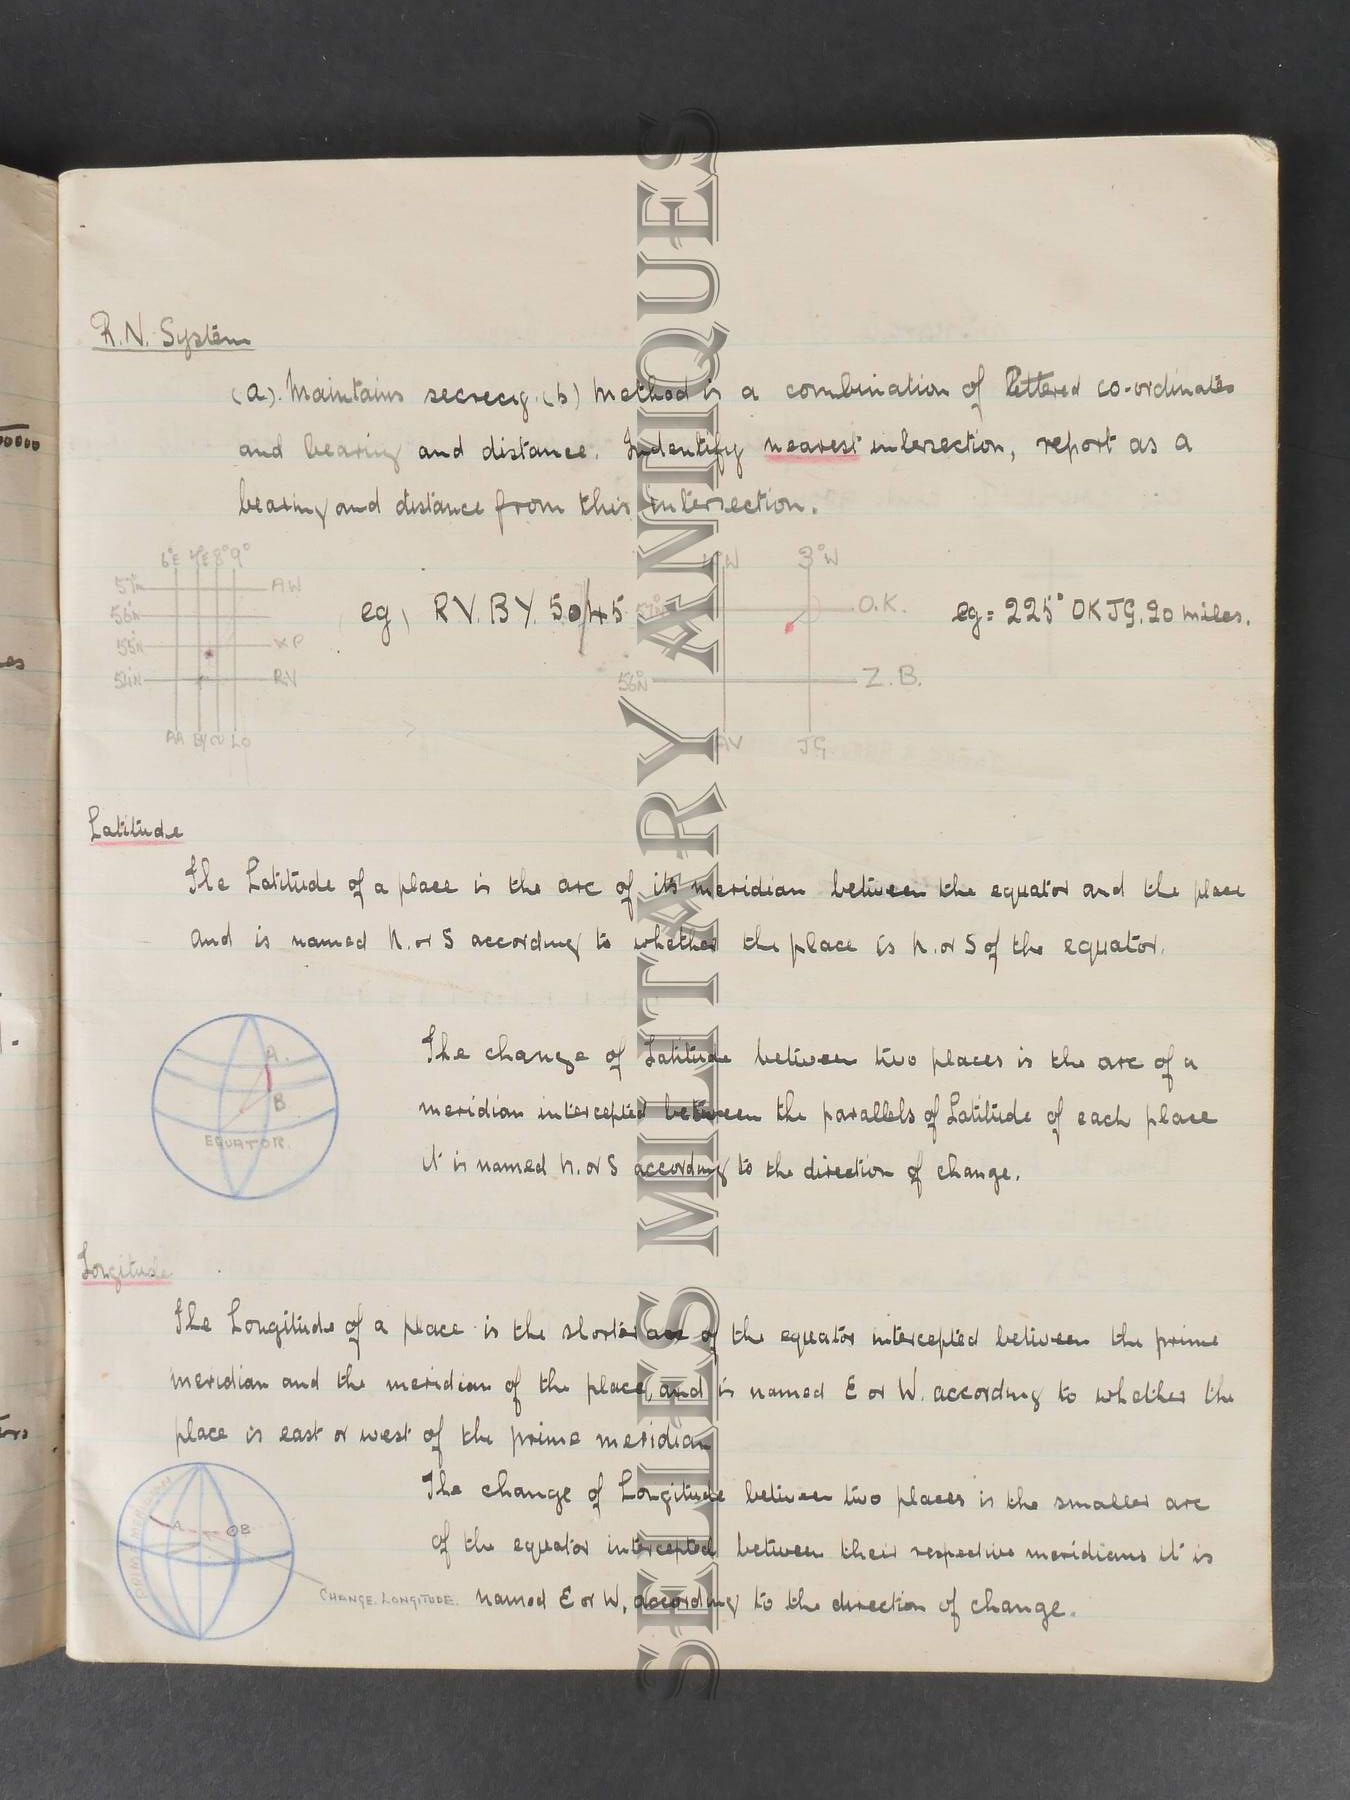 R.N. System
(a). Maintains secrecy. (b) Method is a combination of lettered co-ordinates
and bearing and distance. Indentify nearest intersection, report as a
bearing and distance from this intersection.
6°E 7°E 8° 9°
57°N AW
56°N
55°N XP
54°N RV
AA BY CU LO
eg, RV. BY. 50/45
4°W 3°W
57°N O.K.
56°N Z.B.
AV JG
eg = 225° OK JG. 20 miles.
Latitude
The Latitude of a place is the arc of its meridian between the equator and the place
and is named N. or S according to whether the place is N. or S of the equator.
A.
B
EQUATOR.
The change of Latitude between two places is the arc of a
meridian intercepted between the parallels of Latitude of each place
it is named N. or S according to the direction of change.
Longitude
The Longitude of a place is the shorter arc of the equator intercepted between the prime
meridian and the meridian of the place, and is named E or W. according to whether the
place is east or west of the prime meridian
PRIME MERIDIAN
A
OB
CHANGE. LONGITUDE.
The change of Longitude between two places is the smaller arc
of the equator intercepted between their respective meridians it is
named E or W, according to the direction of change.
SELLES MILITARY ANTIQUES